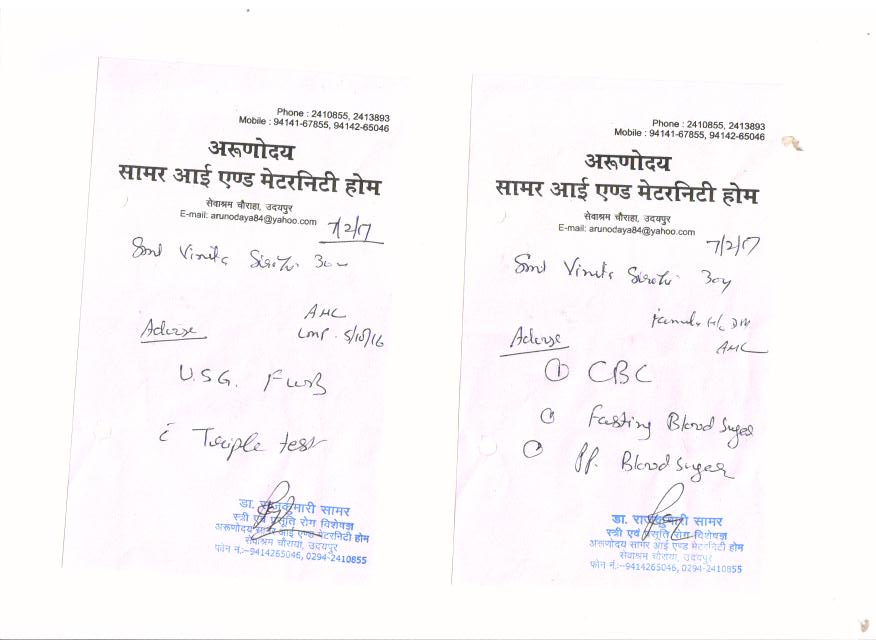 Phone : 2410855, 2413893
Mobile : 94141-67855, 94142-65046
अरूणोदय
सामर आई एण्ड मेटरनिटी होम
सेवाश्रम चौराहा, उदयपुर
E-mail: arunodaya84@yahoo.com
7/2/17
Smt Vinita
ANC
LMP. 5/10/16
Advise
U.S.G. FWB
c Triple test
डा. राजकुमारी सामर
स्त्री एवं प्रसूति रोग विशेषज्ञ
अरूणोदय सामर आई एण्ड मेटरनिटी होम
सेवाश्रम चौराया, उदयपुर
फोन नं.:-9414265046, 0294-2410855
Phone : 2410855, 2413893
Mobile : 94141-67855, 94142-65046
अरूणोदय
सामर आई एण्ड मेटरनिटी होम
सेवाश्रम चौराहा, उदयपुर
E-mail: arunodaya84@yahoo.com
7/2/17
Smt Vinita 30y
Family H/c DM
ANC
Advise
① CBC
Fasting Blood Suger
PP. Blood Suger
डा. राजकुमारी सामर
स्त्री एवं प्रसूति रोग विशेषज्ञ
अरूणोदय सामर आई एण्ड मेटरनिटी होम
सेवाश्रम चौराया, उदयपुर
फोन नं.:-9414265046, 0294-2410855